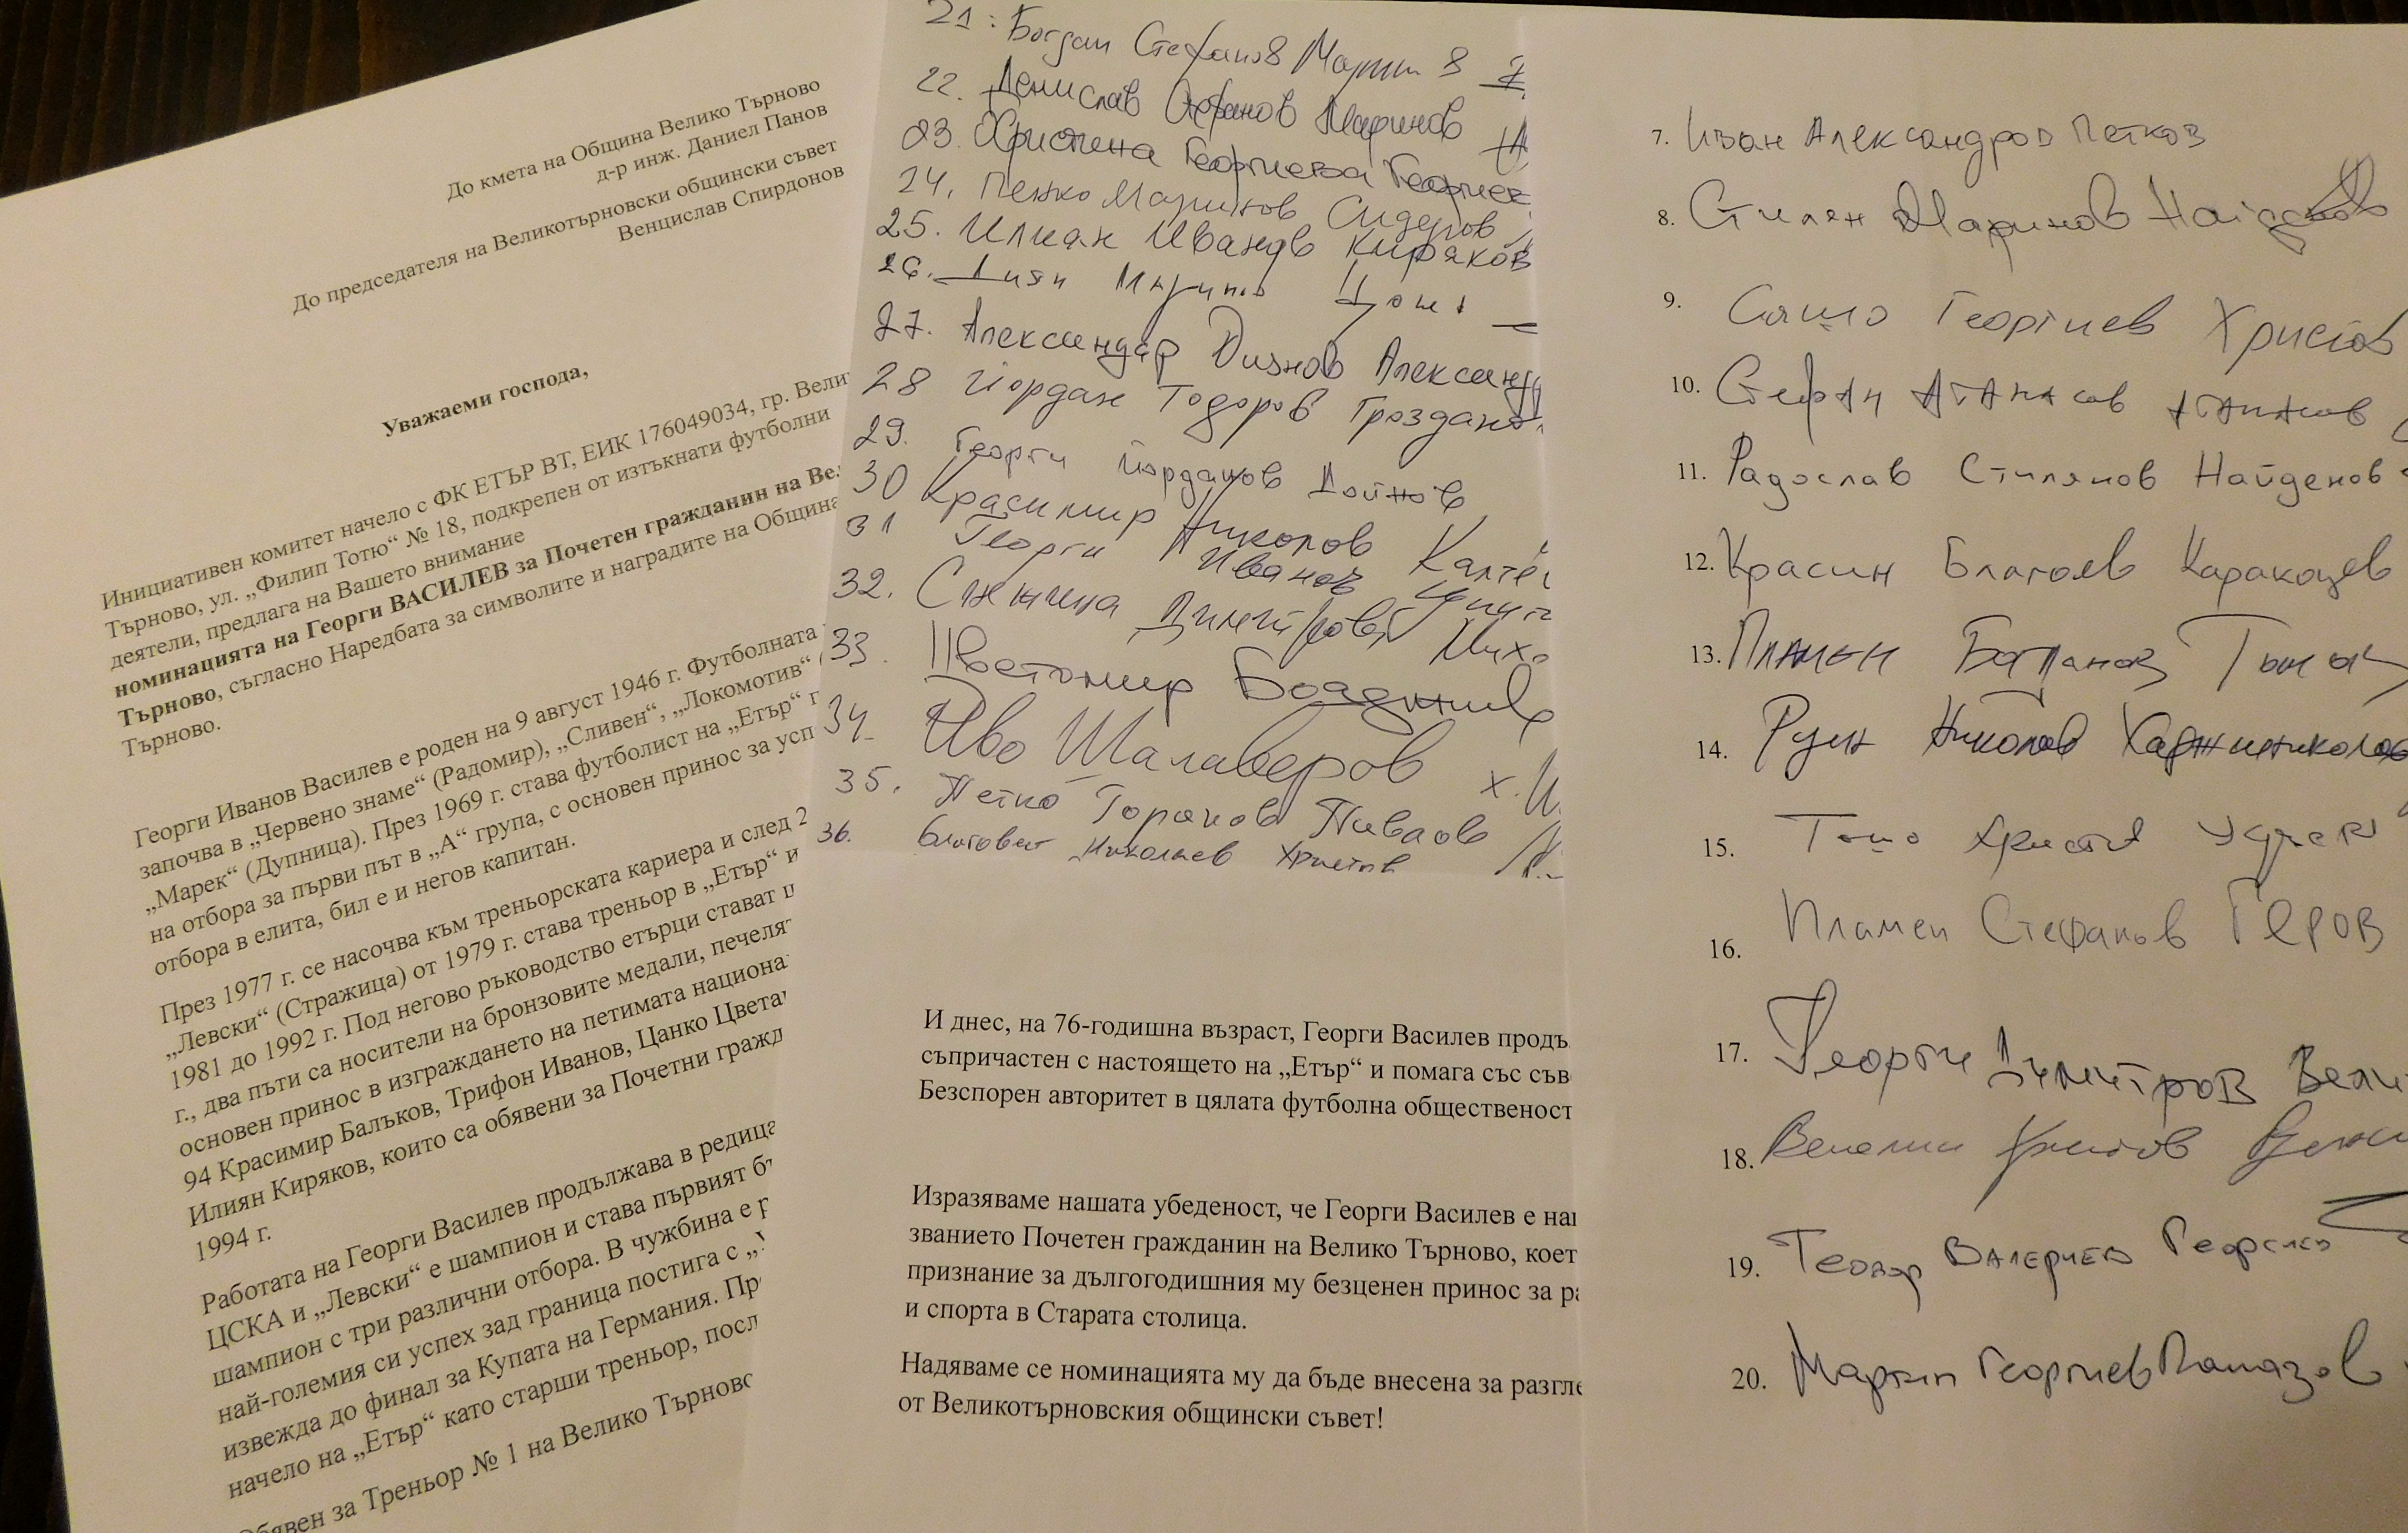 До кмета на Община Велико Търново
д-р инж. Даниел Панов
До председателя на Великотърновски общински съвет
Венцислав Спирдонов
Уважаеми господа,
Инициативен комитет начело с ФК ЕТЪР ВТ, ЕИК 176049034, гр. Вели
Търново, ул. „Филип Тотю“ № 18, подкрепен от изтъкнати футболни
деятели, предлага на Вашето внимание
номинацията на Георги ВАСИЛЕВ за Почетен гражданин на Вел
Търново, съгласно Наредбата за символите и наградите на Община
Търново.
Георги Иванов Василев е роден на 9 август 1946 г. Футболната
започва в „Червено знаме“ (Радомир), „Сливен“, „Локомотив“
„Марек“ (Дупница). През 1969 г. става футболист на „Етър“
на отбора за първи път в „А“ група, с основен принос за усп
отбора в елита, бил е и негов капитан.
През 1977 г. се насочва към треньорската кариера и след 2
„Левски“ (Стражица) от 1979 г. става треньор в „Етър“ и
1981 до 1992 г. Под негово ръководство етърци стават
г., два пъти са носители на бронзовите медали, печеля
основен принос в изграждането на петимата национа
94 Красимир Балъков, Трифон Иванов, Цанко Цвета
Илиян Киряков, които са обявени за Почетни гражд
1994 г.
Работата на Георги Василев продължава в редица
ЦСКА и „Левски“ е шампион и става първият
шампион с три различни отбора. В чужбина е
най-големия си успех зад граница постига с
извежда до финал за Купата на Германия. Пр
начело на „Етър“ като старши треньор, посл
Обявен за Треньор № 1 на Велико Търново
21. Богдан Стефанов
22. Денислав Стефанов Маринов
23. Християна Георгиева Георгиев
24. Пенко Маринов Сидеров
25. Илиан Иванов Киряков
26. Диян
27. Александър Диянов Александ
28 Йордан Тодоров Грозданов
29. Георги Йорданов Дойнов
30 Красимир Николов
31 Георги Иванов
32. Снежина Димитрова Мих
33. Цветомир
34. Иво Шалаверов
35. Петко Горанов
36. Благовест Николаев Христов
И днес, на 76-годишна възраст, Георги Василев продъ
съпричастен с настоящето на „Етър“ и помага със съв
Безспорен авторитет в цялата футболна общественост
Изразяваме нашата убеденост, че Георги Василев е на
званието Почетен гражданин на Велико Търново, коет
признание за дългогодишния му безценен принос за ра
и спорта в Старата столица.
Надяваме се номинацията му да бъде внесена за разгле
от Великотърновския общински съвет!
7. Иван Александров Петков
8. Стилян Маринов Найденов
9. Сашо Георгиев Христов
10. Стефан Атанасов Атанасов
11. Радослав Стилянов Найденов
12. Красин Благоев Каракоцев
13. Пламен
14. Румен Николов Хаджиниколов
15. Тошо
16. Пламен Стефанов Геров
17. Георги Димитров Вели
18. Венелин
19. Теодор Валериев Георгиев
20. Мартин Георгиев